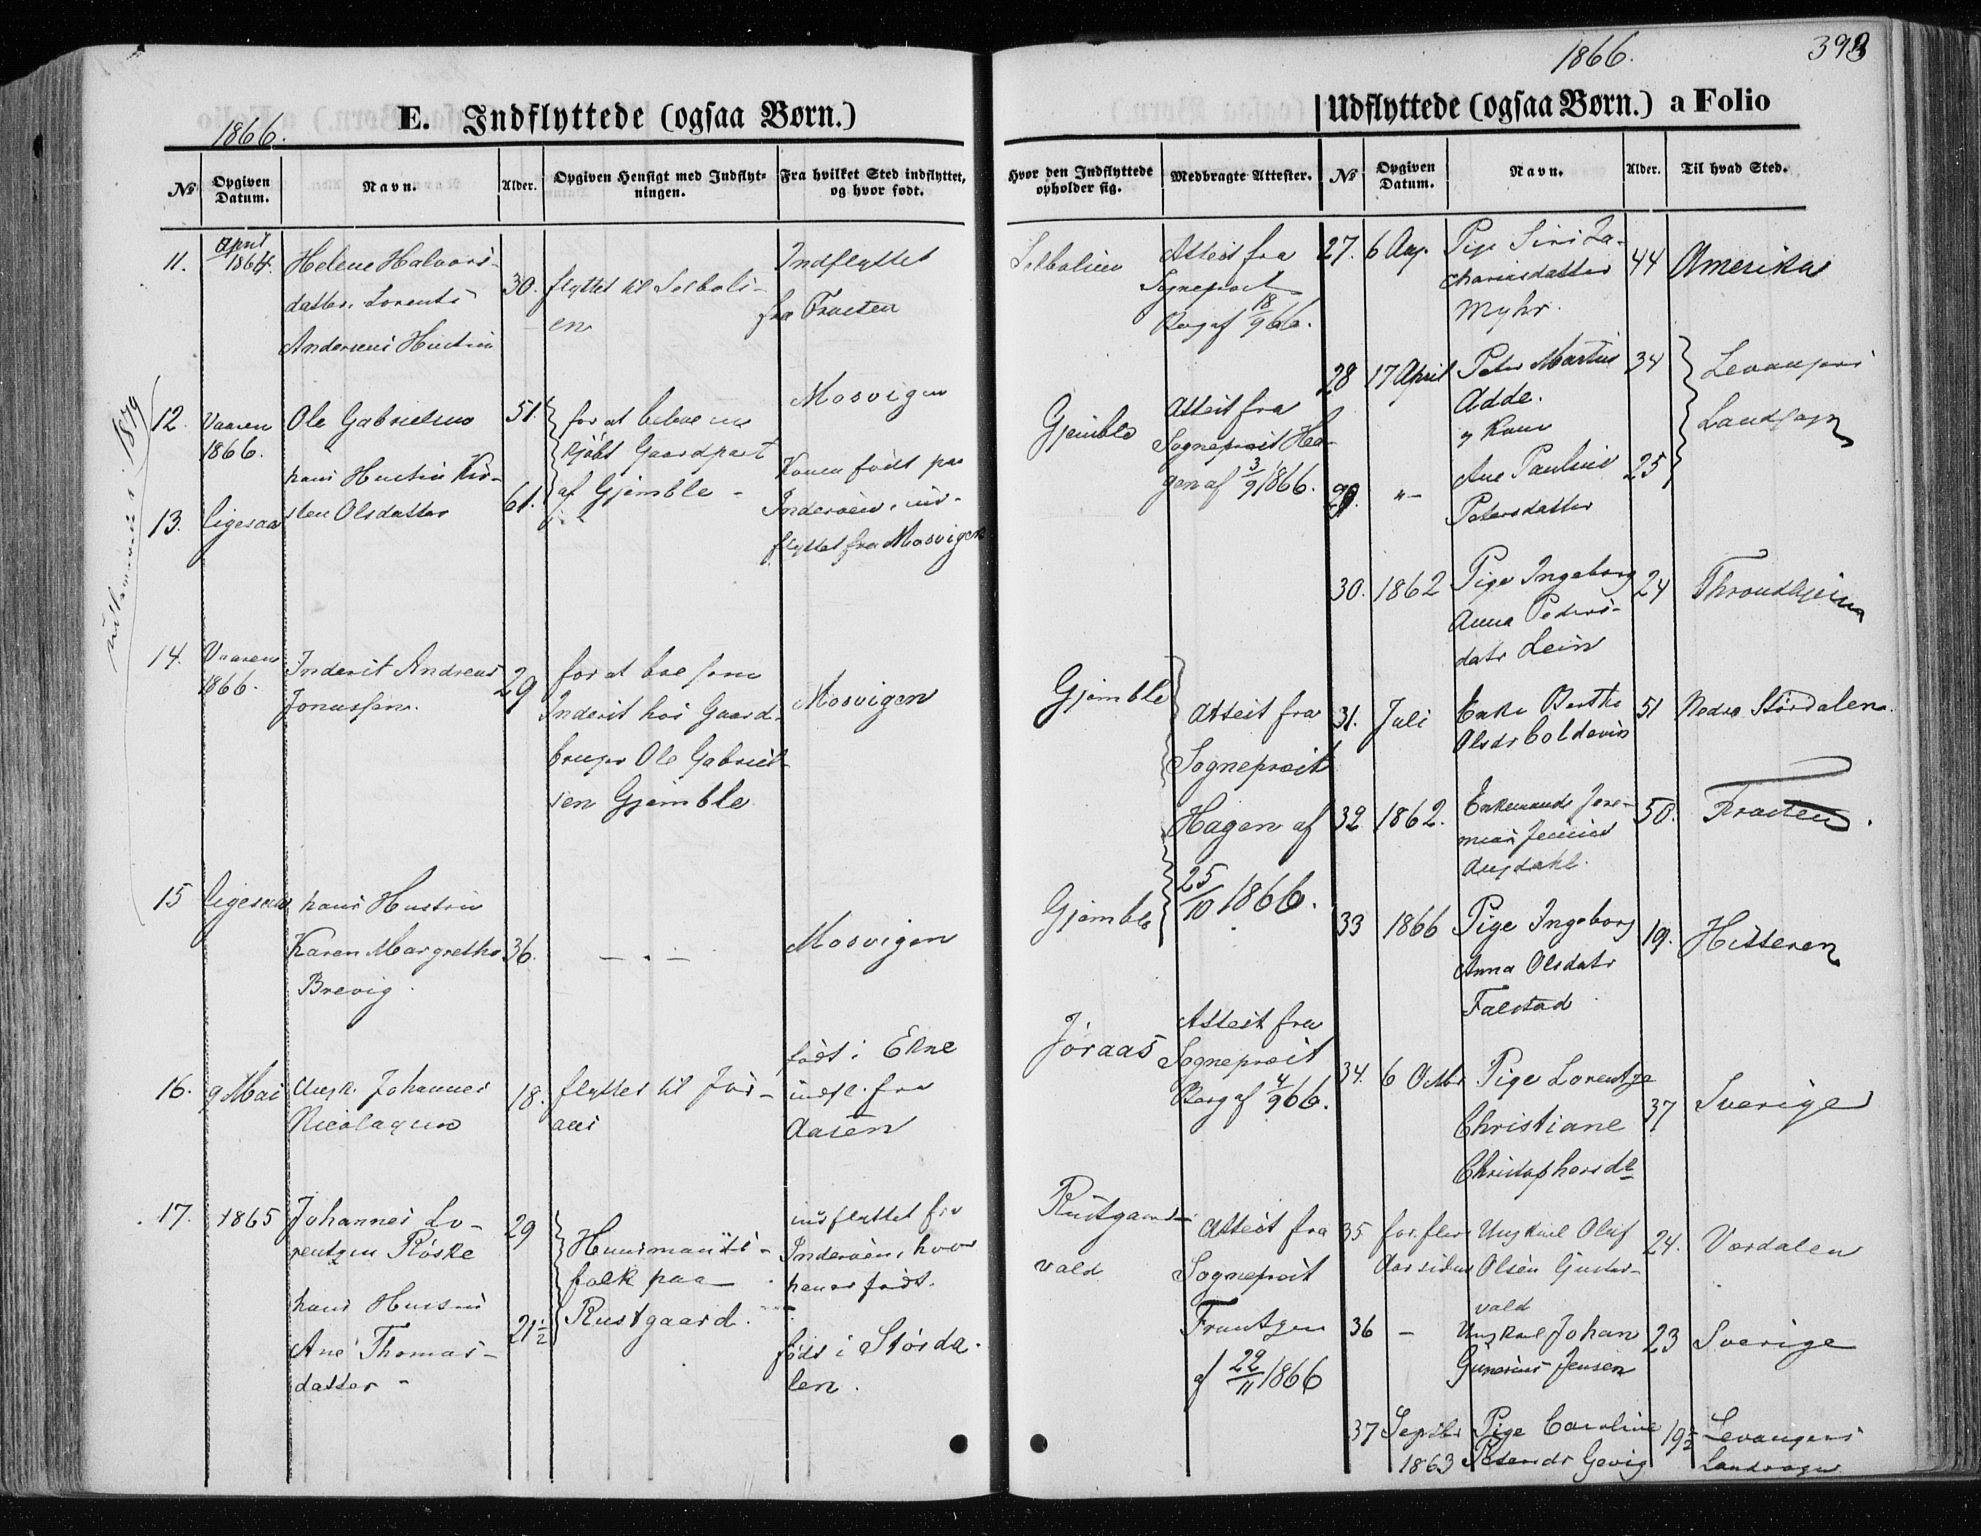 1866.
398
1866.
E. Indflyttede (ogsaa Børn.)
Udflyttede (ogsaa Børn.) a Folio
№
Opgiven Datum.
Navn.
Alder.
Opgiven Hensigt med Indflyt-
ningen.
Fra hvilket Sted indflyttet,
og hvor født.
Hvor den Indflyttede
opholder sig.
Medbragte Attester.
№
Opgiven Datum.
Navn.
Alder.
Til hvad Sted.
11.
April
1864
Helene Halvors-
datter. Lorents
Andersens Hustru
30.
flyttet til
en
Indflyttet
fra Frosten
Attest fra
Sogneprest
Berg af 18/9 66.
12.
Vaaren
1866.
Ole Gabrielsen
51.
for at beboe en
kjøbt Gaardpart
af Gjemble -
Mosvigen
Gjemble
Attest fra
Sogneprest Ha-
gen af 3/9 1866.
13.
ligesaa
hans Hustru Kir-
sten Olsdatter
61.
Konen født paa
Inderøen, ind-
flyttet fra Mosvigen
1879
14.
Vaaren
1866.
Inderst Andreas
Jonassen.
29
for at boe som
Inderst hos Gaard-
bruger Ole Gabriel-
sen Gjemble
Mosvigen
Gjemble
Attest fra
Sogneprest
Hagen af
25/10 1866.
15
ligesaa
hans Hustru
Karen Margrethe
Brevig
36.
- " -
Mosvigen
Gjemble
16.
9 Mai
Ungk. Johannes
Nicolaysen
18.
flyttet til Jør-
aas
født i Ekne
indfl. fra
Aasen
Jøraas
Attest fra
Sogneprest
Berg af 4/9 66.
17.
1865
Johannes Lo-
rentzen Røske
29
Huusmands-
folk paa
Rustgaard.
indflyttet fra
Inderøen, hvor
han er født.
hans Hustru
Ane Thomas-
datter -
21½
født i Størda-
len.
Rustgaard-
vald
Attest fra
Sogneprest
Frantzen
af 29/11 1866
27.
6 Aug.
Pige Siri Za-
chariasdatter
Myhr.
44
Amerika
28
17 April
Peter Martin
Adde.
34
Levangers
Landsogn
29.
"-
og Kone
Ane Pauline
Petersdatter
25
30.
1862
Pige Ingeborg
Anna Peders-
datr Lein
24
Throndhjem
31.
Juli
Enke Berthe
Olsdr Coldevin
51
Nedre Størdalen.
32
1862.
Enkemand Jere-
mias Jenssen
Augdahl.
50.
Frosten.
33
1866
Pige Ingeborg
Anna Olsdatr
Falstad
19.
Hitteren
34.
6 Octbr
Pige Lorentze
Christiane
Christophersdr
37
Sverige
35
for flere
Aar siden
Ungkarl Oluf
Olsen Gustar-
vald
24.
Værdalen
36
-
Ungkarl Johan
Gunerius Jensen
23
Sverige
37
Septbr
1863
Pige Caroline
Petersdr Gevig
19½
Levangers
Landsogn